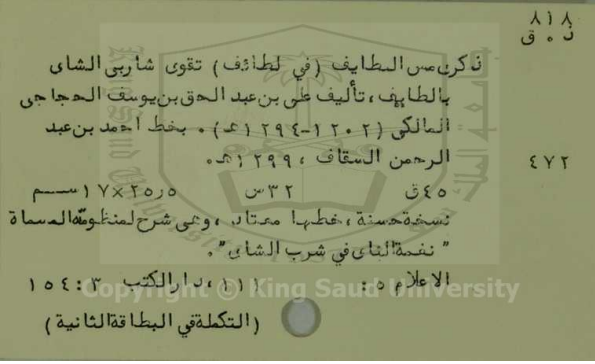 ٨١٨
ذ ٠ ق
ذكرى من الطايف (في لطائف) تقوى شاربى الشاى
بالطايف ، تأليف على بن عبد الحق بن يوسف الحجاجى
المالكى (١٢٠٢-١٢٩٤هـ) ٠ بخط احمد بن عبد
الرحمن السقاف ، ١٢٩٩هـ٠
٤٧٢
٤٥ق ٣٢س ٢٥٫٥×١٧سـم
نسخة حسنة ، خطها معتاد ، وهى شرح لمنظومته المسماة
" نغمة الناى في شرب الشاى"٠
الاعلام ٥: ١١١ ، دار الكتب ٣: ١٥٤
Copyright © King Saud University
(التكملة في البطاقة الثانية)